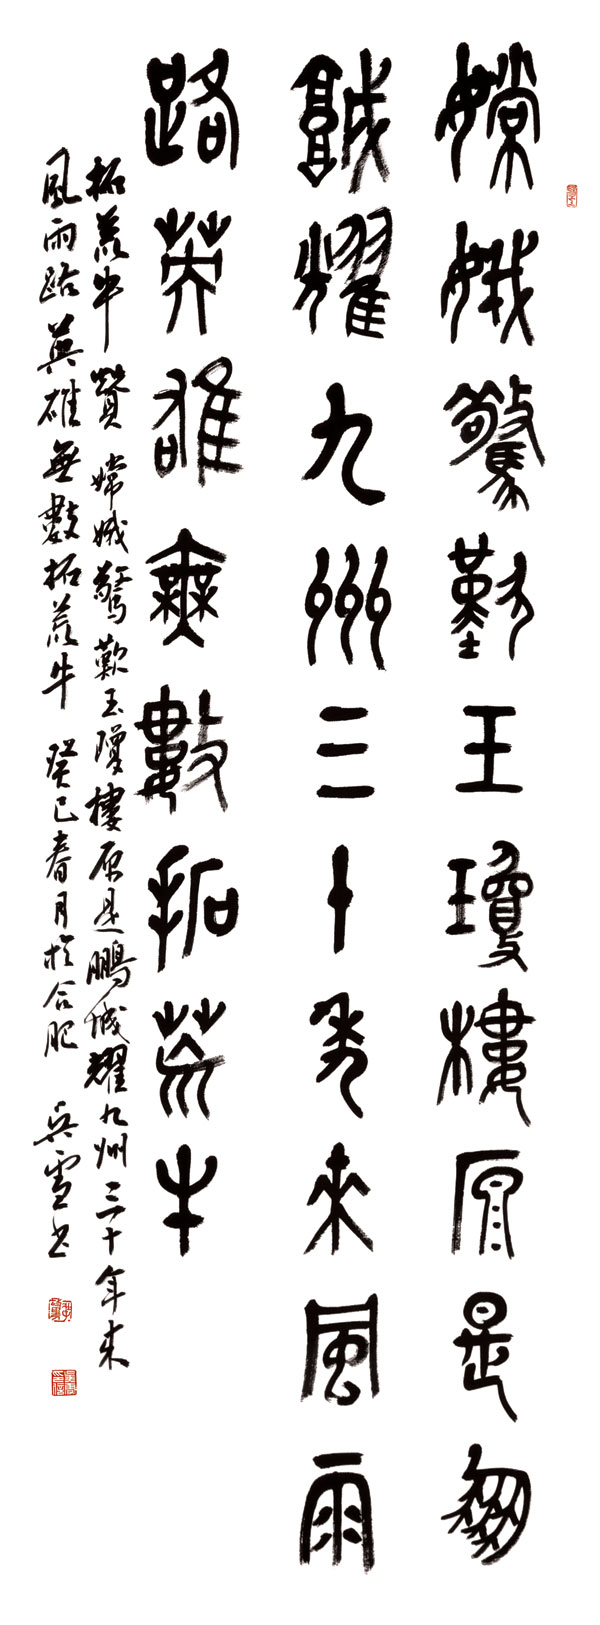 嫦娥驚歎玉瓊樓原是鵬
城耀九州三十年來風雨
路英雄無數拓荒牛
拓荒牛贊 嫦娥驚歎玉瓊樓原是鵬城耀九州三十年來
風雨路英雄無數拓荒牛 癸巳春月於合肥 吳雪书